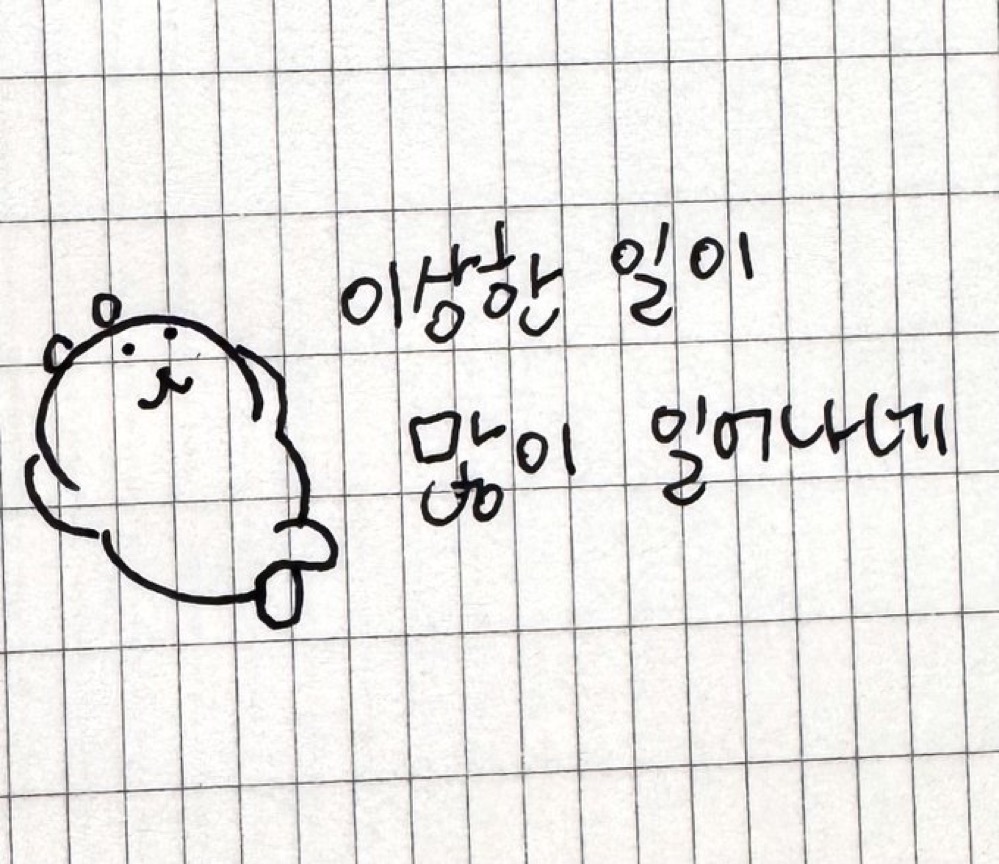 이상한 일이
많이 일어나네